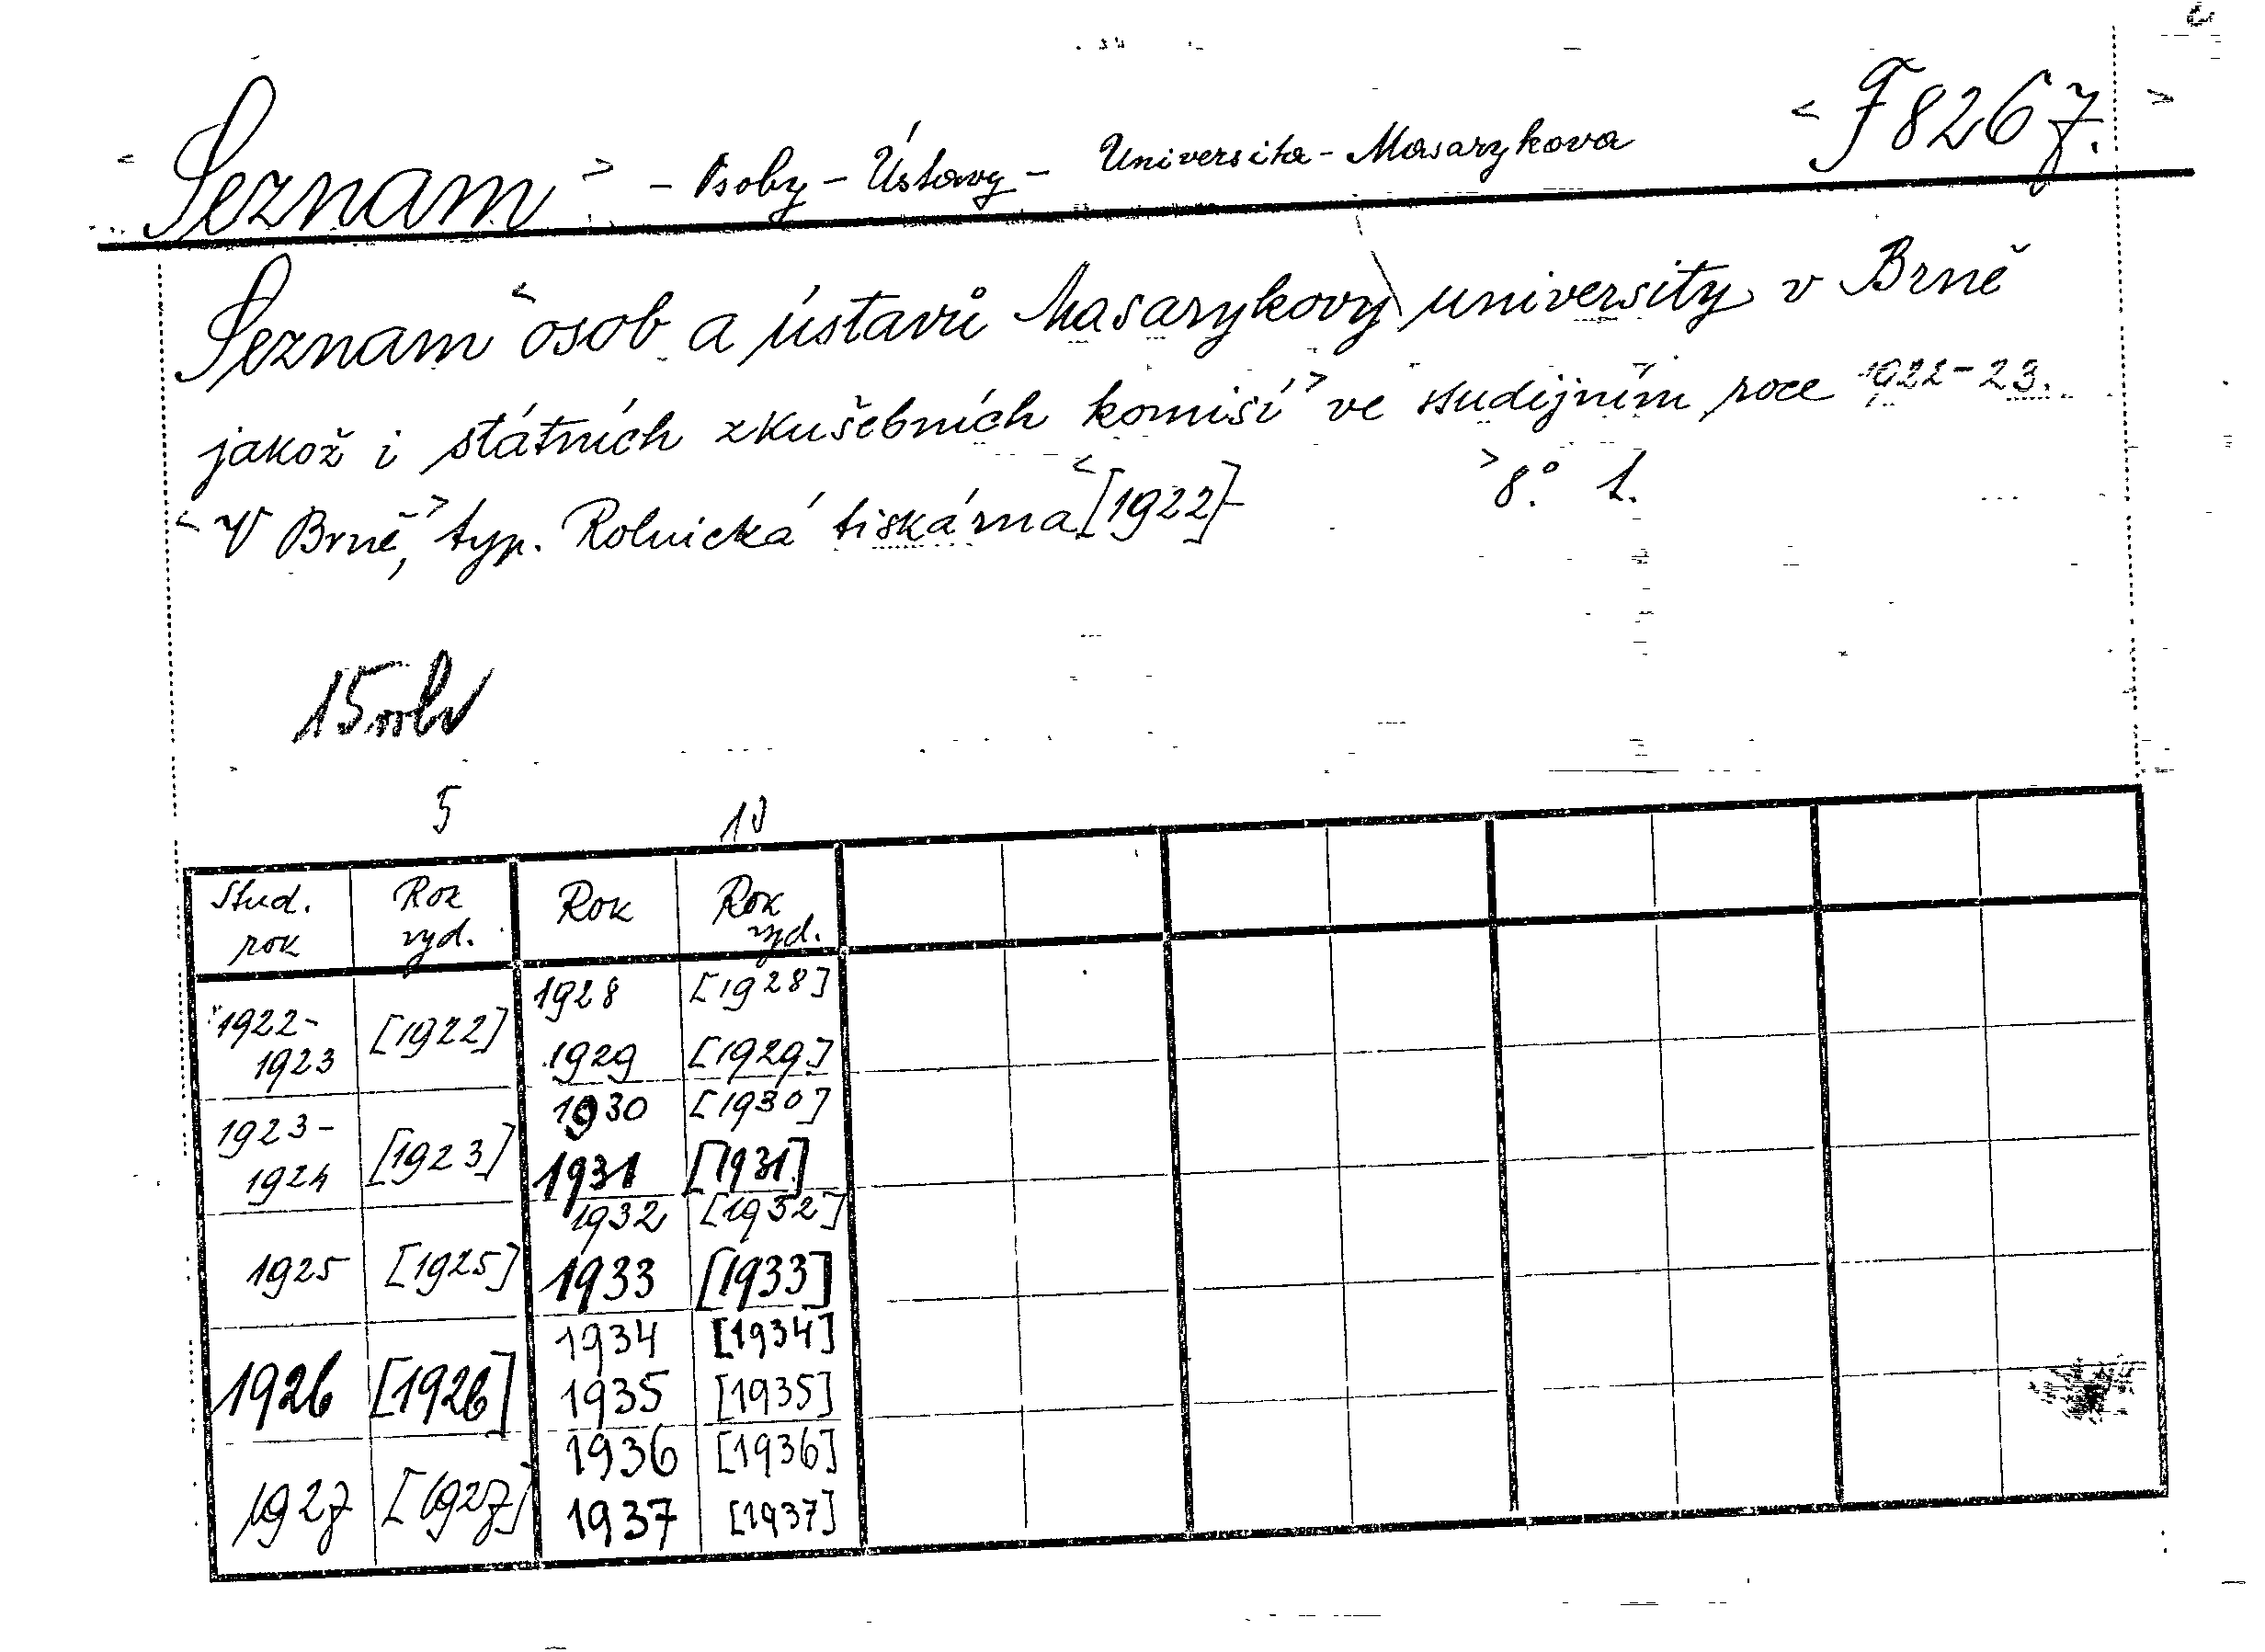 < Seznam > - Osoby - Ústavy - Universita - Masarykova < F 8267. >
Seznam < osob a ústavů Masarykovy university v Brně
jakož i státních zkušebních komisí > ve studijním roce 1922-23.
< V Brně, > typ. Rolnická tiskárna < [1922]- > 8.° 1.
5 10
Stud. rok Rok vyd. Rok Rok vyd.
1922-1923 [1922] 1928 [1928]
1929 [1929]
1923-1924 [1923] 1930 [1930]
1931 [1931]
1925 [1925] 1932 [1932]
1933 [1933]
1926 [1926] 1934 [1934]
1935 [1935]
1927 [1927] 1936 [1936]
1937 [1937]